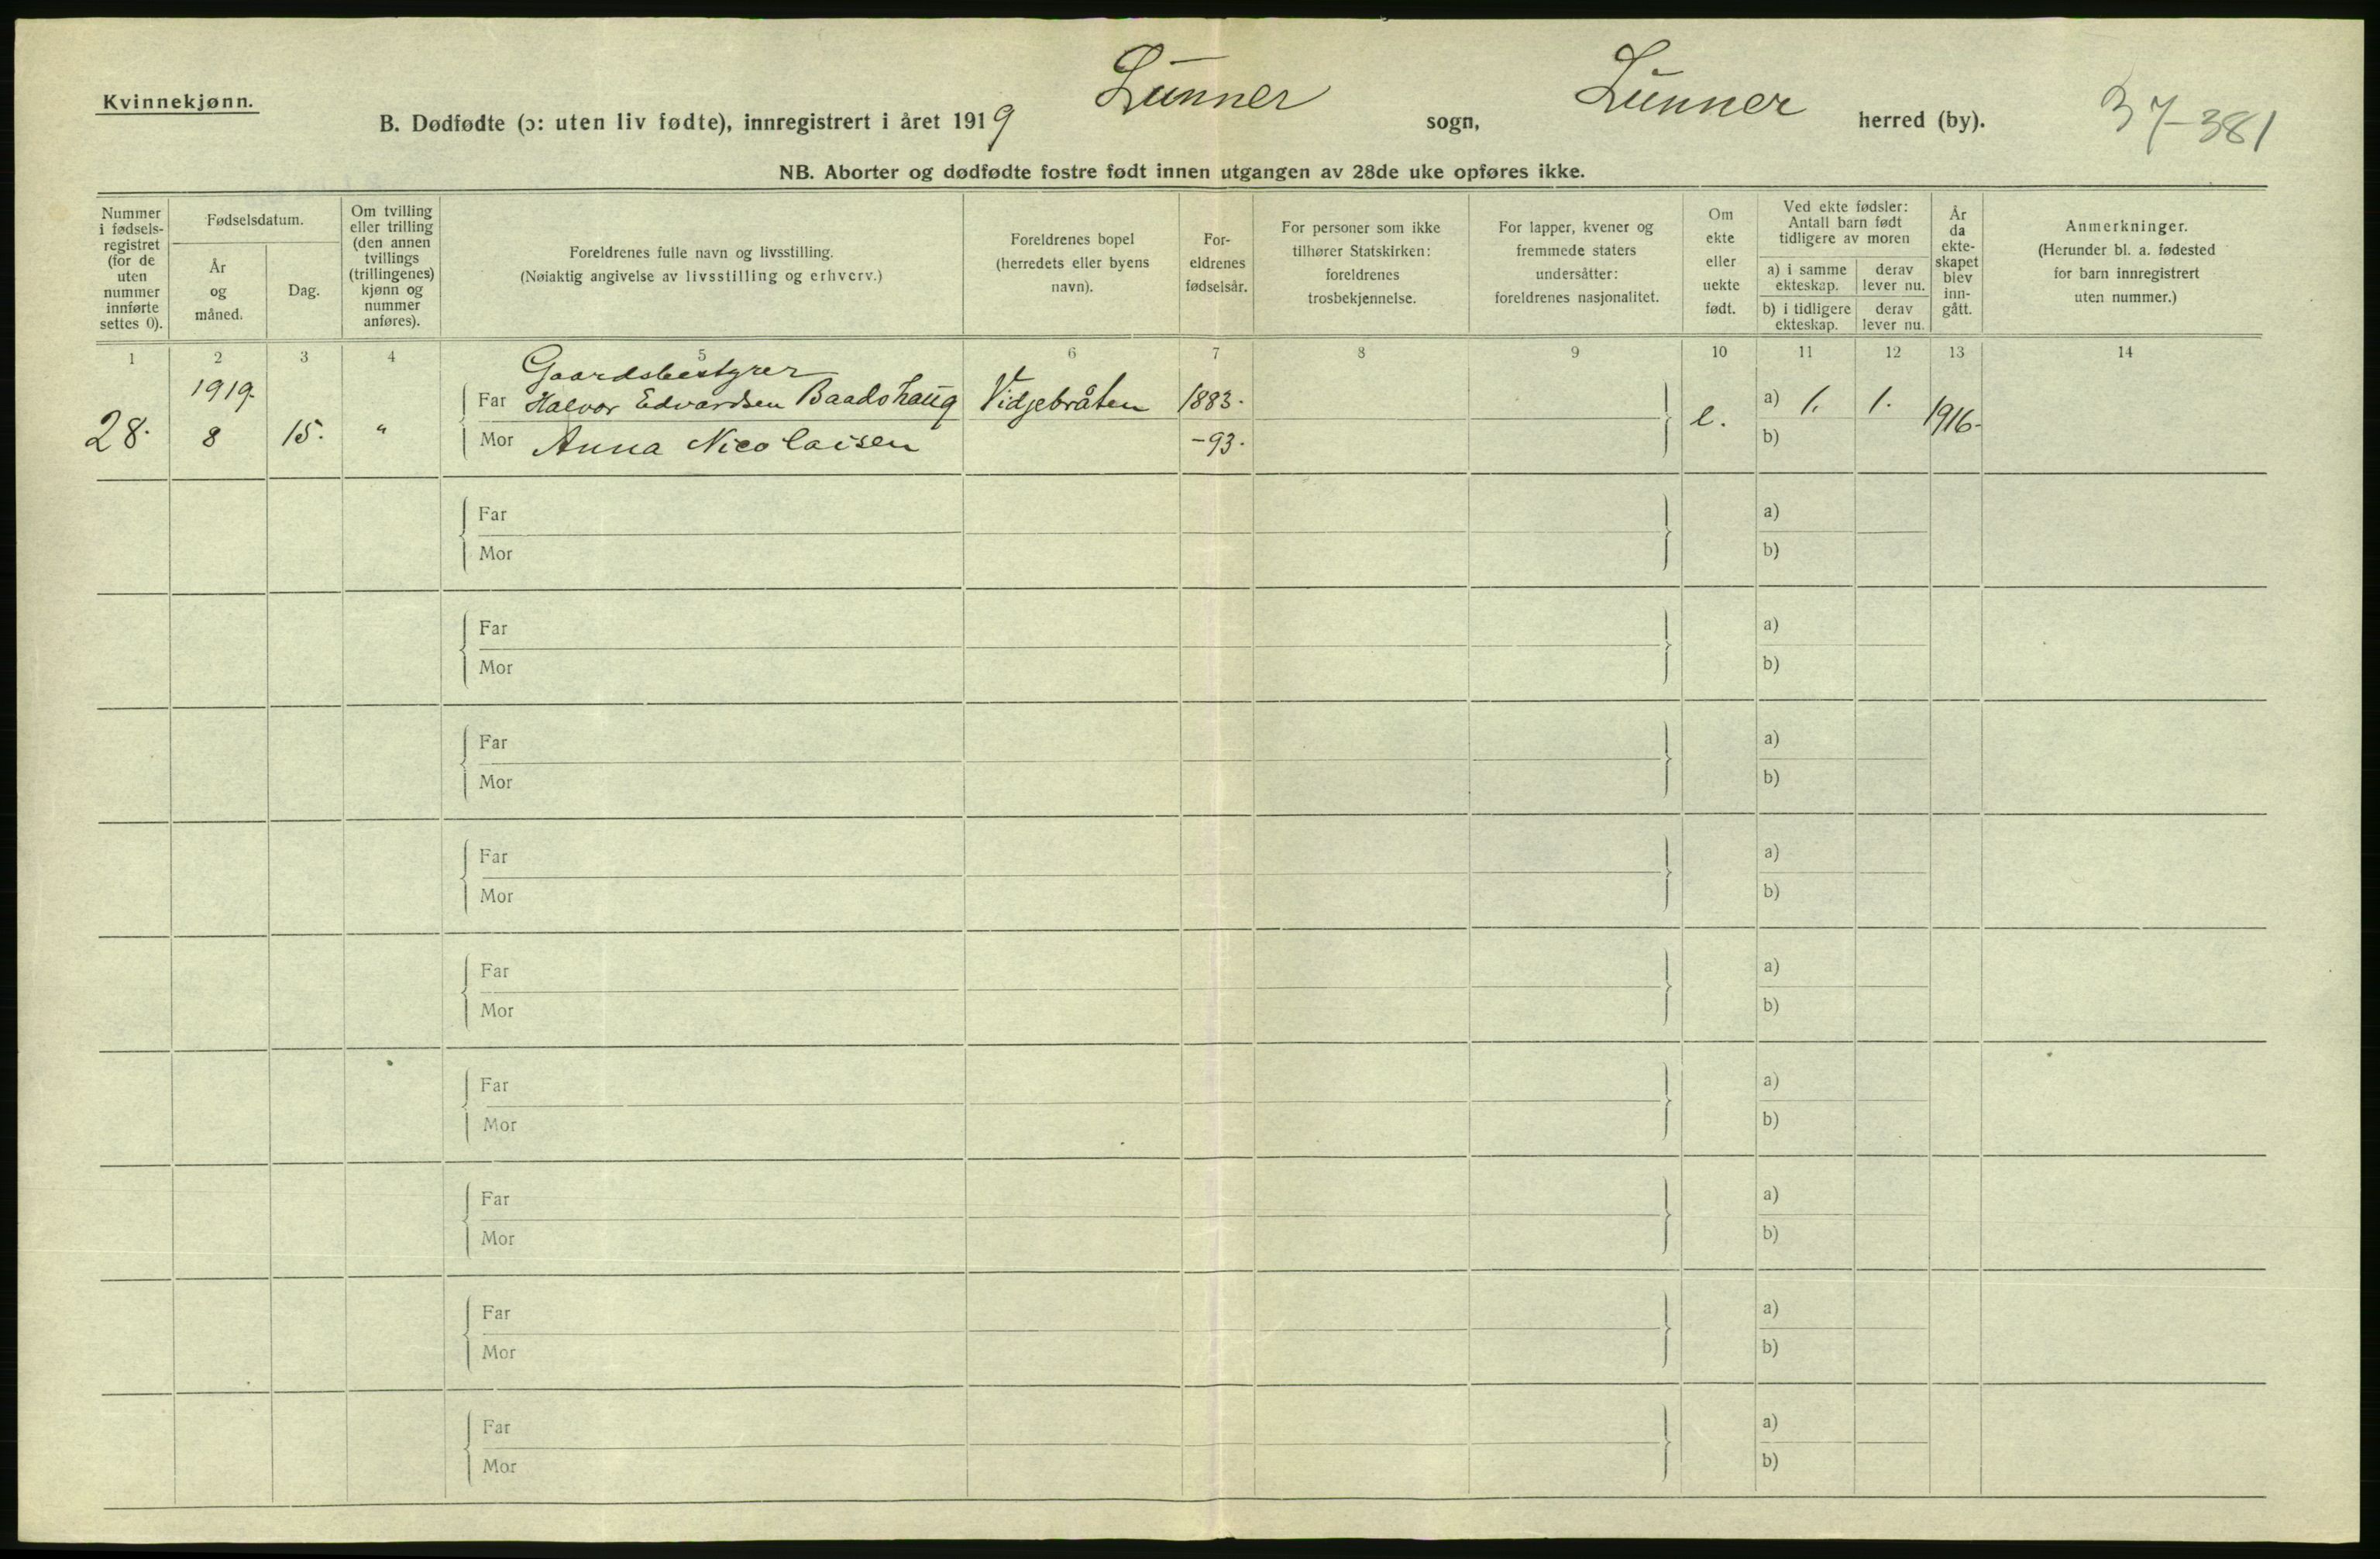 Kvinnekjønn.
B. Dødfødte (ɔ: uten liv fødte), innregistrert i året 1919 Lunner sogn, Lunner herred (by).
37-381
NB. Aborter og dødfødte fostre født innen utgangen av 28de uke opføres ikke.
Nummer i fødsels-registret (for de uten nummer innførte settes 0).
Fødselsdatum.
År og måned.
Dag.
Om tvilling eller trilling (den annen tvillings (trillingenes) kjønn og nummer anføres).
Foreldrenes fulle navn og livsstilling.
(Nøiaktig angivelse av livsstilling og erhverv.)
Foreldrenes bopel (herredets eller byens navn).
For-eldrenes fødselsår.
For personer som ikke tilhører Statskirken: foreldrenes trosbekjennelse.
For lapper, kvener og fremmede staters undersåtter: foreldrenes nasjonalitet.
Om ekte eller uekte født.
Ved ekte fødsler: Antall barn født tidligere av moren
a) i samme ekteskap.
derav lever nu.
b) i tidligere ekteskap.
derav lever nu.
År da ekte-skapet blev inn-gått.
Anmerkninger.
(Herunder bl. a. fødested for barn innregistrert uten nummer.)
1 2 3 4 5 6 7 8 9 10 11 12 13 14
Gaardsbestyrer
1919. Far Halvor Edvardsen Baadshaug Vidjebråten 1883. a) 1. 1.
28. 8 15. " Mor Anna Nicolaisen -93. e. b) 1916.
Far a)
Mor b)
Far a)
Mor b)
Far a)
Mor b)
Far a)
Mor b)
Far a)
Mor b)
Far a)
Mor b)
Far a)
Mor b)
Far a)
Mor b)
Far a)
Mor b)